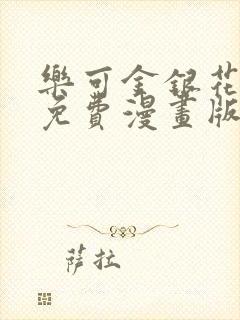 樂可金銀花
免費漫畫版
薩拉